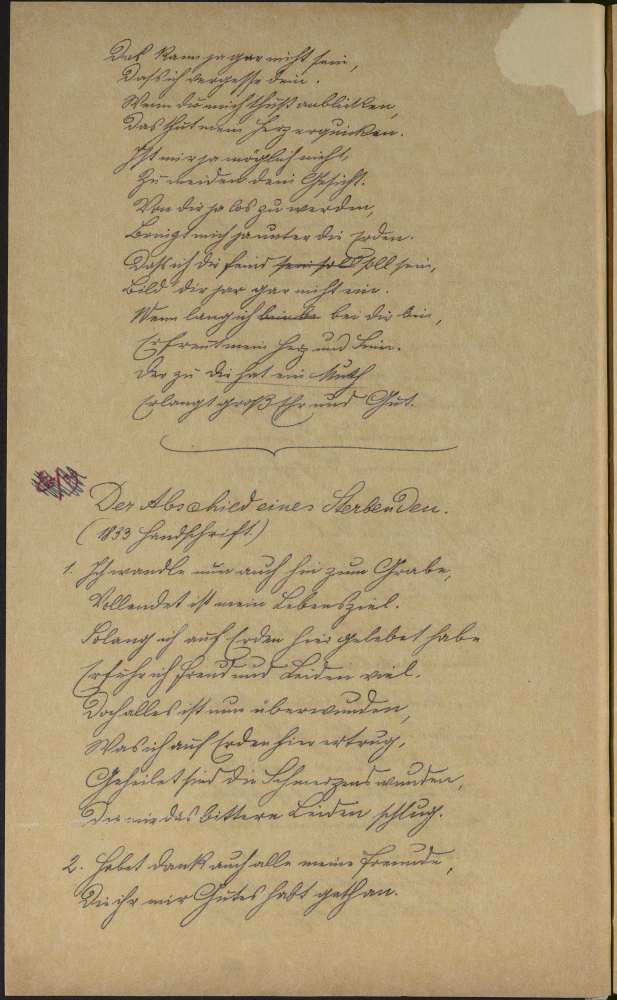 Das kann ja gar nicht sein,
Dass ich vergesse dein.
Wenn du mich thust anblicken,
Das thut mein Herz erquicken.
Ist mir ja möglich nicht,
Zu meiden dein Gesicht.
Von dir ja los zu werden,
Bringt mich ja unter die Erden.
Dass ich dir feind soll sein,
Bild dir gar nicht ein.
Wenn lang ich bei dir bin,
Erfreut mein Herz und Sinn.
Der zu dir hat ein Muth
Erlangt groß Ehr und Gut.
Der Abschied eines Sterbenden.
(1833 Handschrift)
1. Ich wandle nun auch hin zum Grabe,
Vollendet ist mein Lebensziel.
Solang ich auf Erden hier gelebet habe
Erfuhr ich Freud und Leiden viel.
Doch alles ist nun überwunden,
Was ich auf Erden hier ertrug,
Geheilet sind die Schmerzenswunden,
Die mir das bittere Leiden schlug.
2. Habet Dank auch alle meine Freunde,
Die ihr mir Gutes habt gethan.